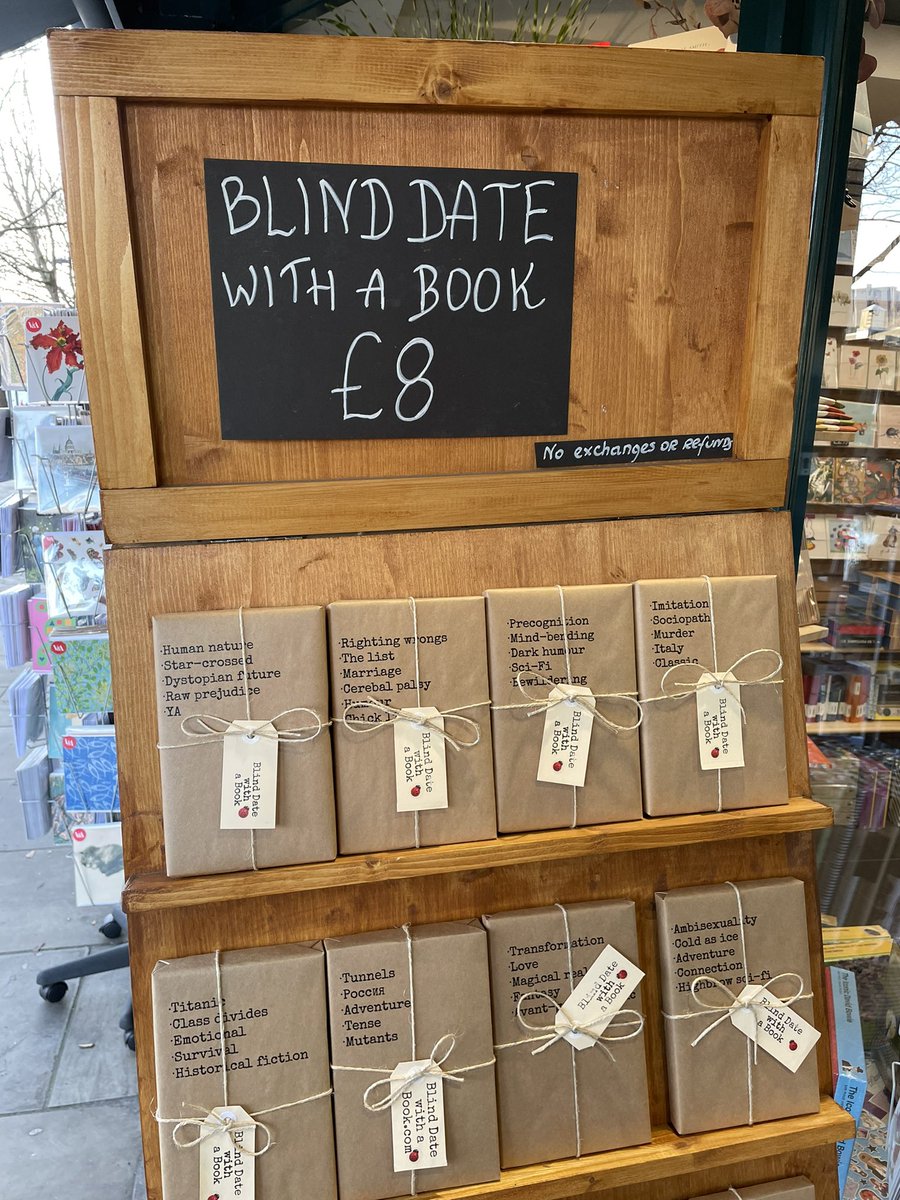 BLIND DATE
WITH A BOOK
£8
No exchanges OR Refunds
·Human nature
·Star-crossed
·Dystopian future
·Raw prejudice
·YA
Blind Date
with
a Book
·Righting wrongs
·The list
·Marriage
·Cerebral palsy
·Humour
·Chick
Blind Date
with
a Book
·Precognition
·Mind-bending
·Dark humour
·Sci-Fi
·Bewildering
Blind Date
with
a Book
·Imitation
·Sociopath
·Murder
·Italy
·Classic
Blind Date
with
a Book
·Titanic
·Class divides
·Emotional
·Survival
·Historical fiction
Blind Date
with
a Book
·Tunnels
·Россия
·Adventure
·Tense
·Mutants
Blind Date
with a
Book.com
·Transformation
·Love
·Magical
·Fantasy
Blind Date
with
a Book
·Ambisexuality
·Cold as ice
·Adventure
·Connection
·Highbrow sci-fi
Blind Date
with
a Book